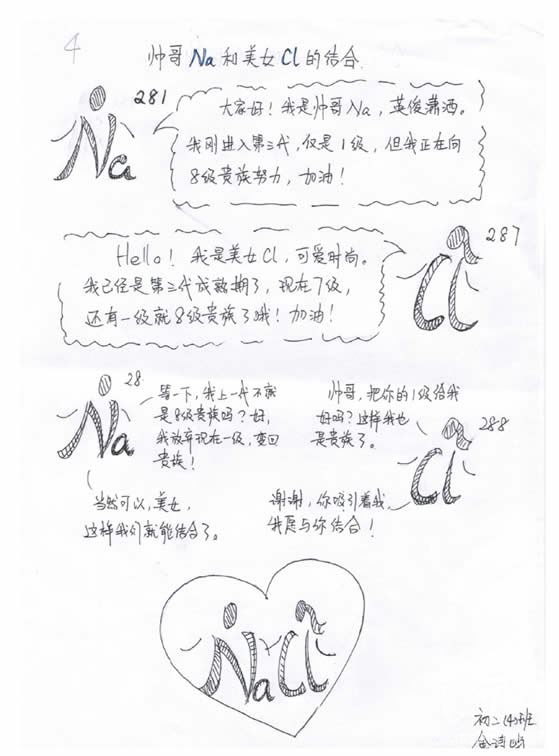 4
帅哥Na和美女Cl的结合
Na 281
大家好！我是帅哥Na，英俊潇洒。
我刚进入第三代，仅是1级，但我正在向
8级贵族努力，加油！
Hello！我是美女Cl，可爱时尚。
我已经是第三代成熟期了，现在7级，
还有一级就8级贵族了哦！加油！
Cl 287
Na 28
等一下，我上一代不就
是8级贵族吗？好，
我放弃现在一级，变回
贵族！
帅哥，把你的1级给我
好吗？这样我也
是贵族了。
Cl 288
当然可以，美女，
这样我们就能结合了。
谢谢，你吸引着我，
我愿与你结合！
NaCl
初二(4)班